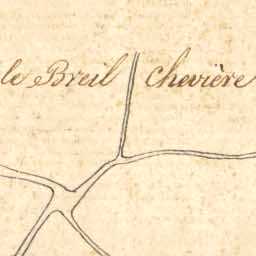 le Breil Chevière